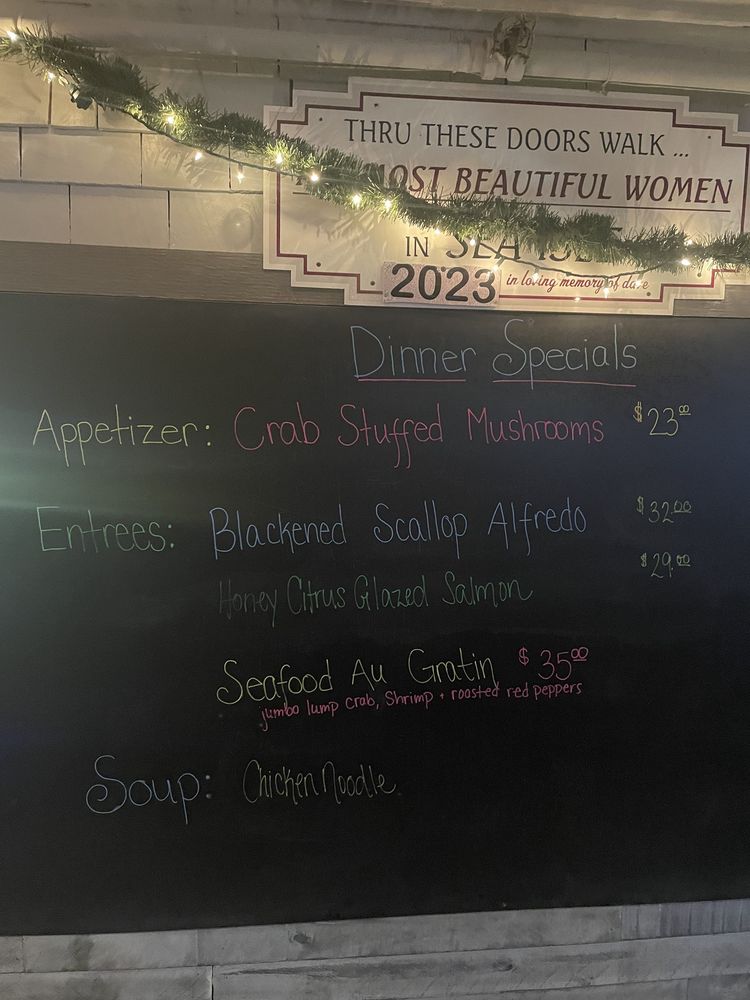 THRU THESE DOORS WALK ...
MOST BEAUTIFUL WOMEN
IN SEA ISLE
2023 in loving memory of dave
Dinner Specials
Appetizer: Crab Stuffed Mushrooms $23.00
Entrees: Blackened Scallop Alfredo $32.00
$29.00
Honey Citrus Glazed Salmon
Seafood Au Gratin $35.00
jumbo lump crab, Shrimp + roasted red peppers
Soup: Chicken Noodle